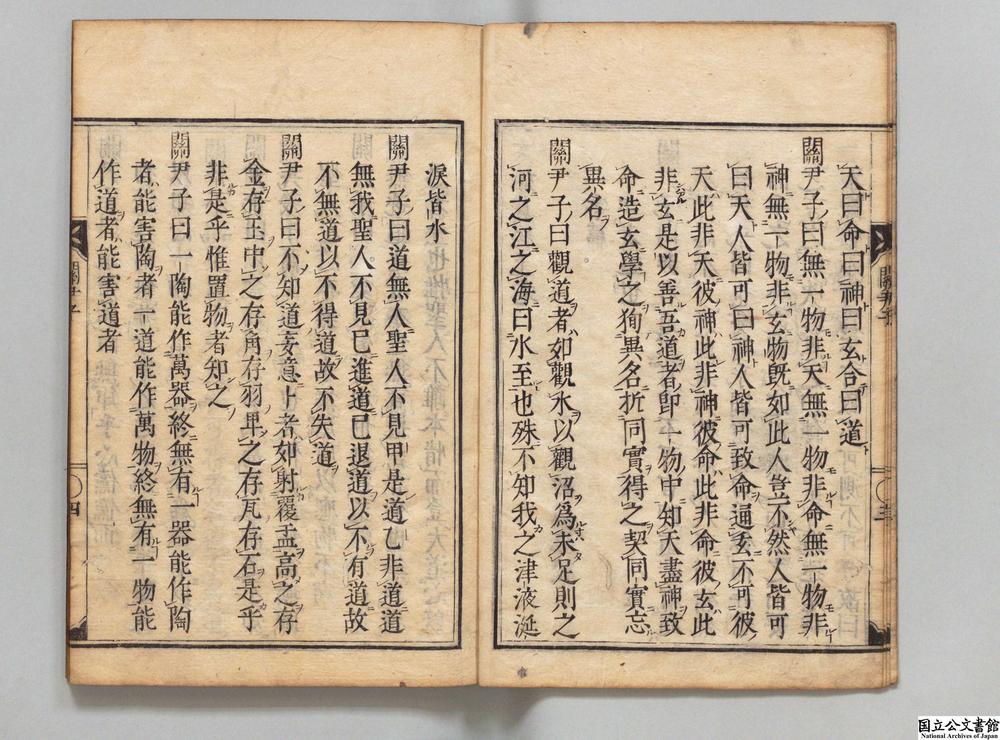 天曰命曰神曰玄合曰道
關尹子曰無一物非天無一物非命無一物非
神無一物非玄物既如此人豈不然人皆可
曰天人皆可曰神人皆可致命通玄不可彼
天此非天彼神此非神彼命此非命彼玄此
非玄是以善吾道者即一物中知天盡神致
命造玄學之狥異名折同實得之契同實忘
異名
關尹子曰觀道者如觀水以觀沼爲未足則之
河之江之海曰水至也殊不知我之津液涎
關尹子
三
淚皆水
關尹子曰道無人聖人不見甲是道乙非道道
無我聖人不見已進道已退道以不有道故
不無道以不得道故不失道
關尹子曰不知道妄意卜者如射覆盂高之存
金存玉中之存角存羽卑之存瓦存石是乎
非是乎惟置物者知之
關尹子曰一陶能作萬器終無有一器能作陶
者能害陶者一道能作萬物終無有一物能
作道者能害道者
關尹子
四
国立公文書館
National Archives of Japan